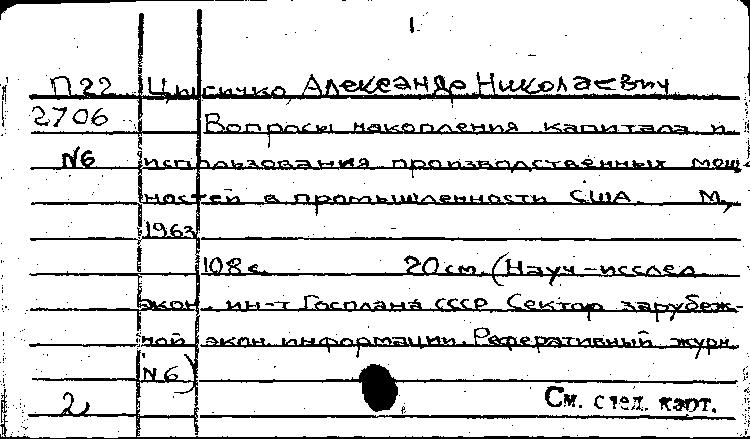 1
П22 Цыгичко, Александр Николаевич
2706 Вопросы накопления капитала и
N6 использования производственных мощ-
ностей в промышленности США. М.,
1963
108 с. 20 см. (Науч.-исслед.
экон. ин-т Госплана СССР. Сектор зарубеж-
ной экон. информации. Реферативный журн.
N6)
2 См. след. карт.